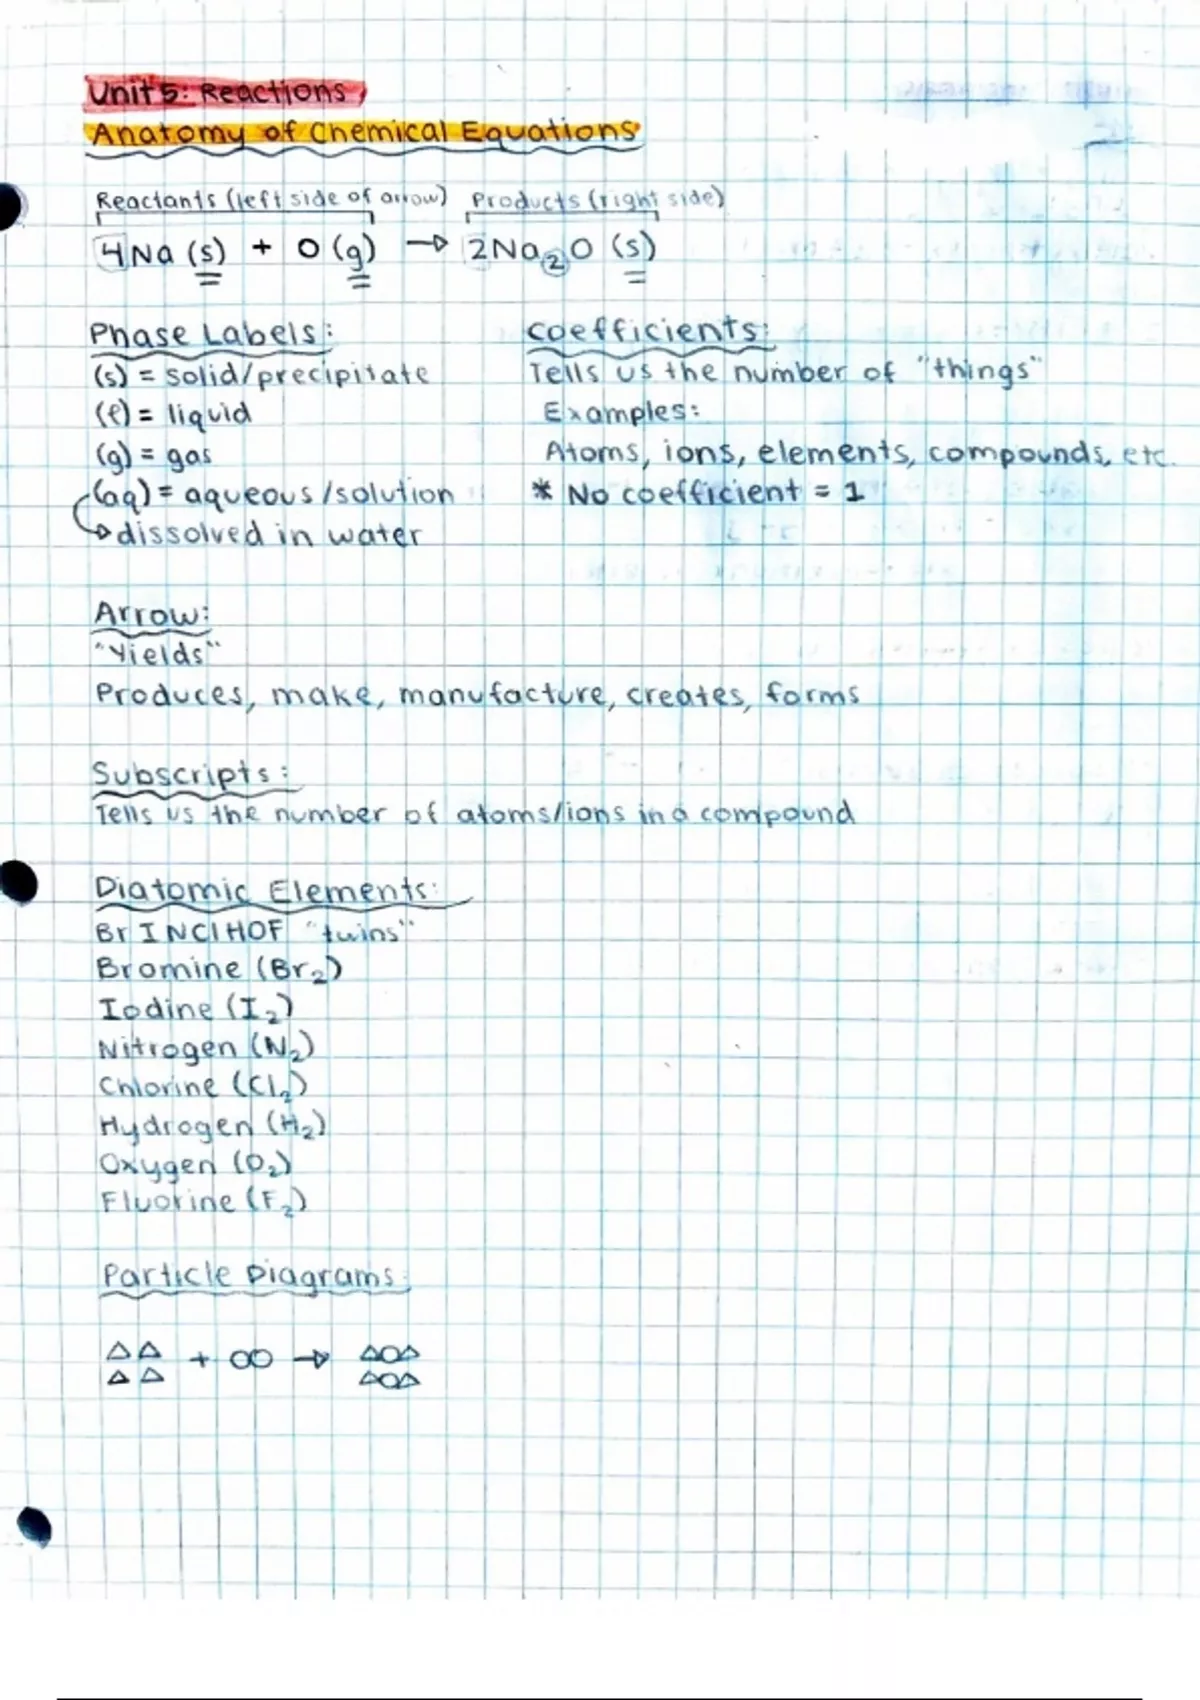 Unit 5: Reactions
Anatomy of Chemical Equations
Reactants (left side of arrow) Products (right side)
4Na (s) + O (g) → 2Na₂O (s)
Phase Labels:
(s) = solid/precipitate
(l) = liquid
(g) = gas
(aq) = aqueous/solution
→ dissolved in water
Coefficients:
Tells us the number of "things"
Examples:
Atoms, ions, elements, compounds, etc.
* No coefficient = 1
Arrow:
"Yields"
Produces, make, manufacture, creates, forms
Subscripts:
Tells us the number of atoms/ions in a compound
Diatomic Elements:
Br I N Cl H O F "twins"
Bromine (Br₂)
Iodine (I₂)
Nitrogen (N₂)
Chlorine (Cl₂)
Hydrogen (H₂)
Oxygen (O₂)
Fluorine (F₂)
Particle Diagrams: